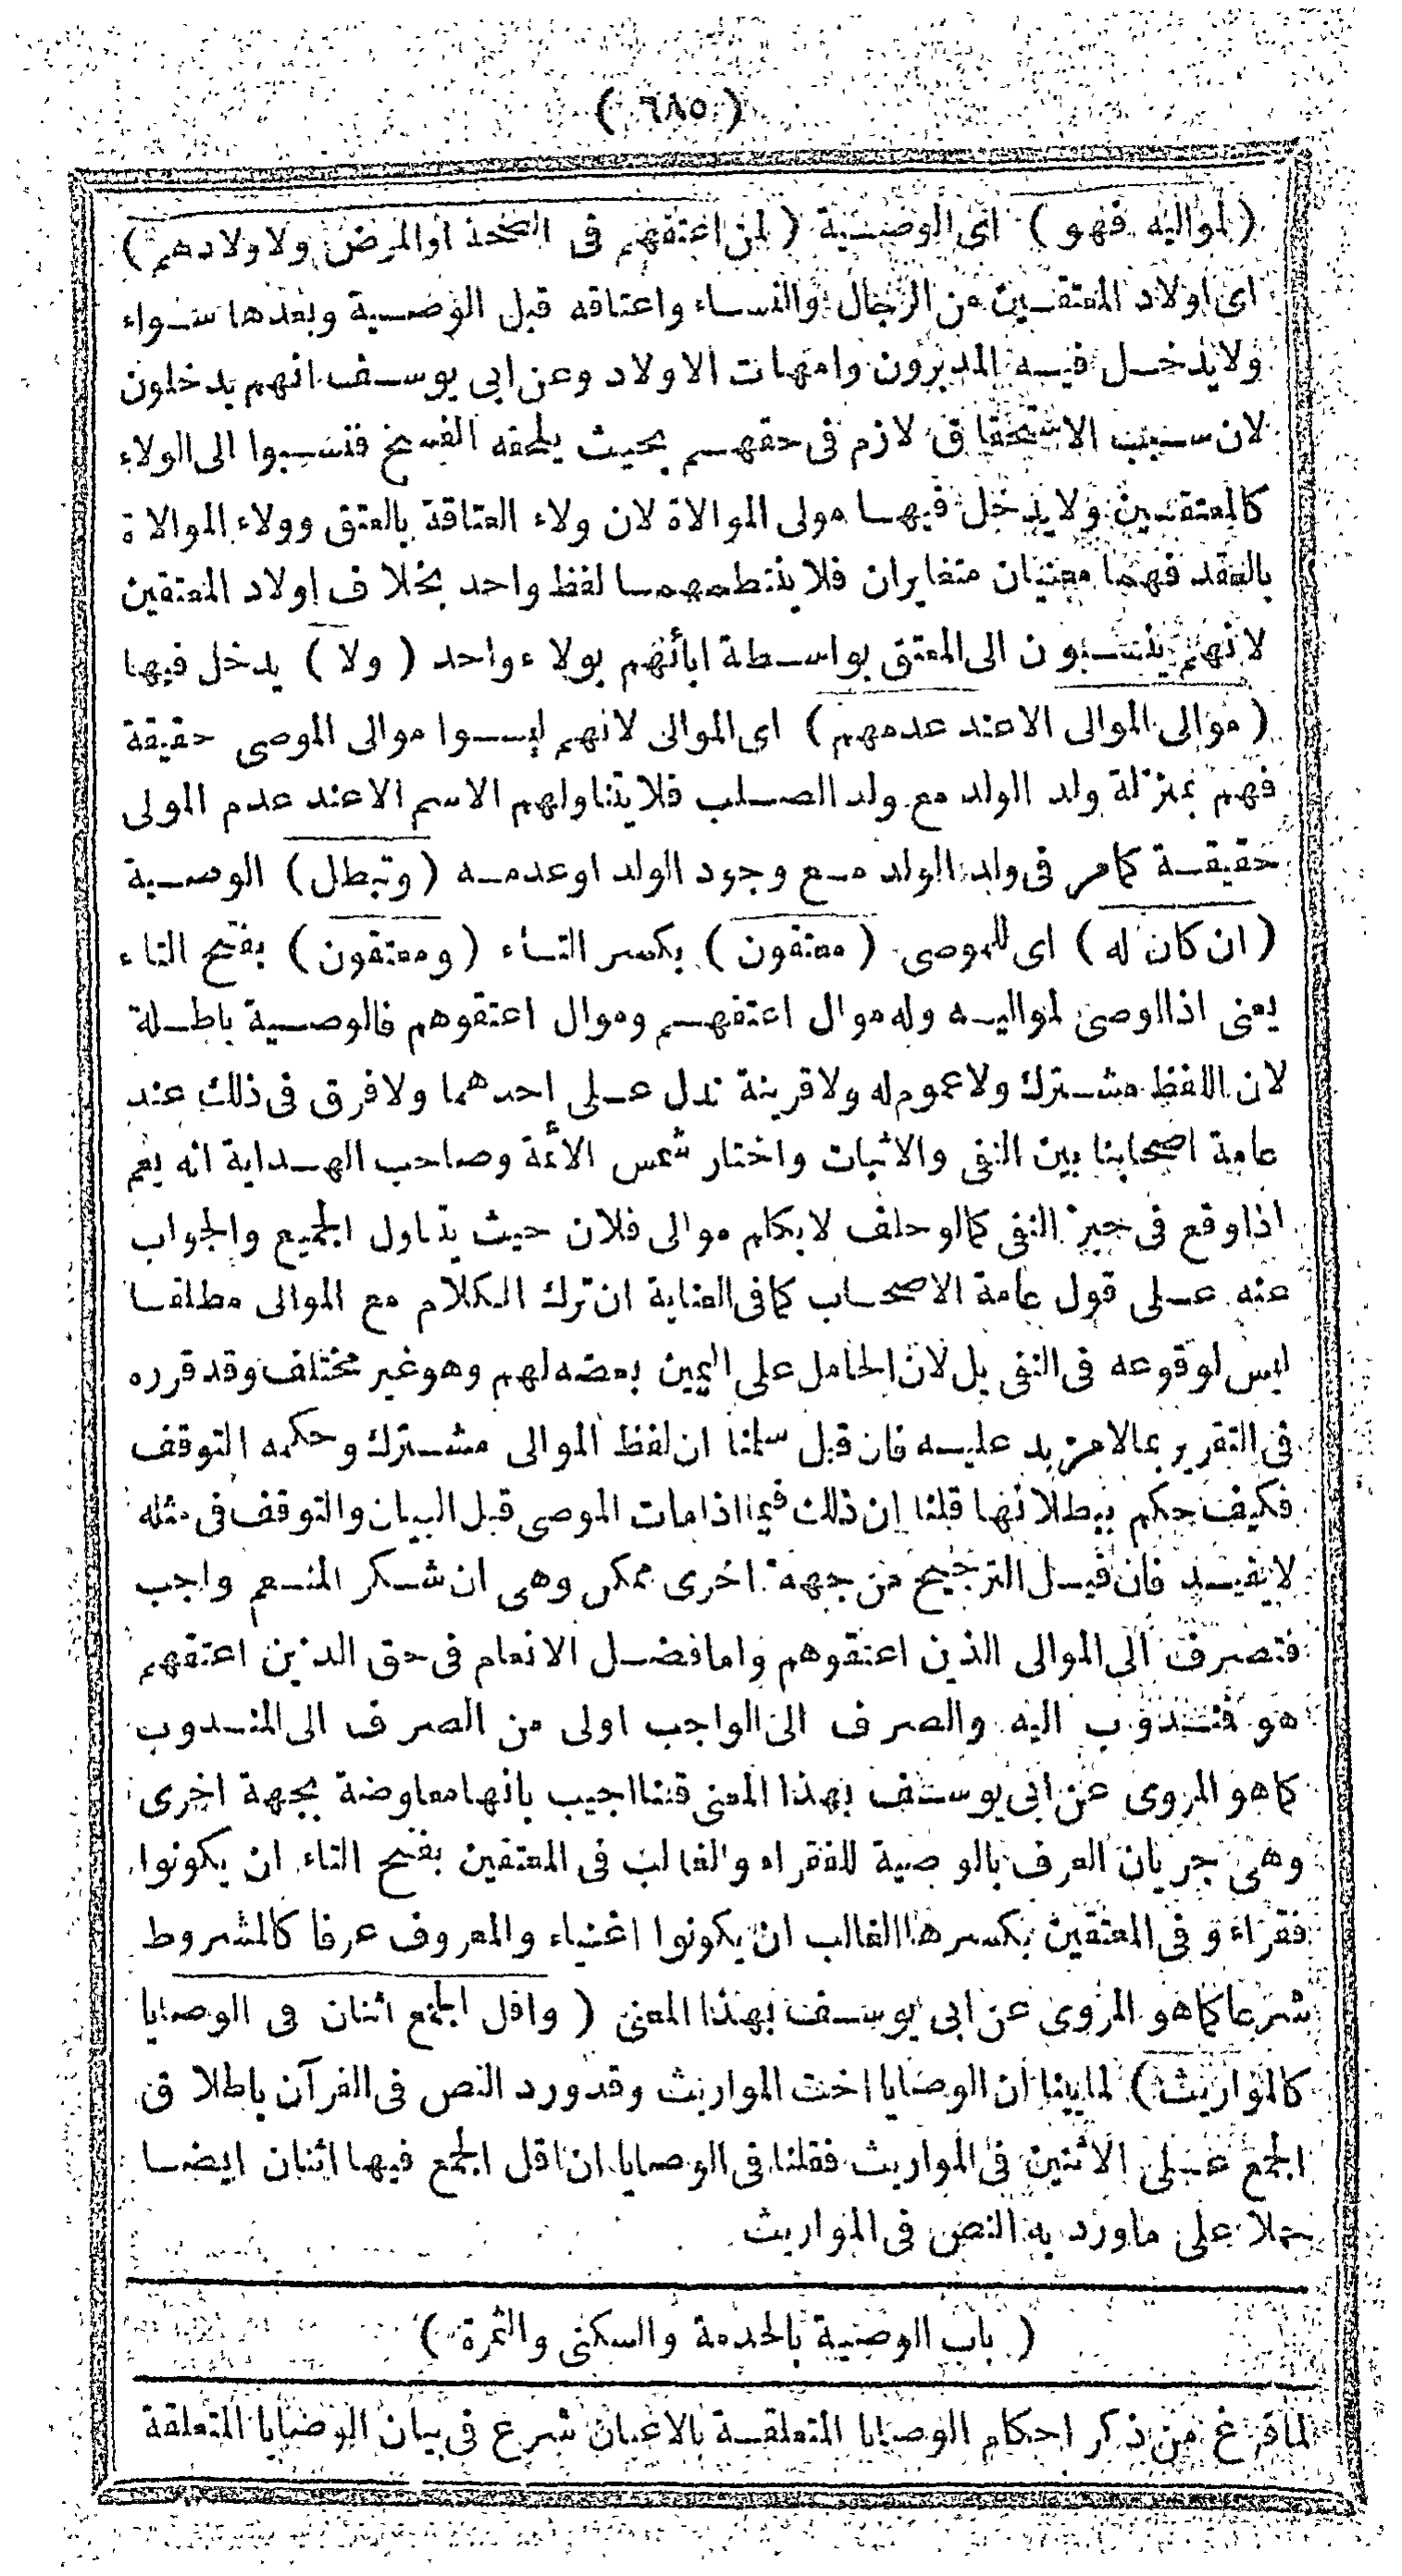 ( ٦٨٥ )
( لمواليه فهو ) اى الوصية ( لمن اعتقهم فى الصحة اوالمرض ولاولادهم )
اى اولاد المعتقين من الرجال والنساء واعتاقه قبل الوصية وبعدها سواء
ولايدخل فيه المدبرون وامهات الاولاد وعن ابى يوسف انهم يدخلون
لان سبب الاستحقاق لازم فى حقهم بحيث يلحقه الفسخ فنسبوا الى الولاء
كالمعتقين ولايدخل فيها مولى الموالاة لان ولاء العتاقة بالعتق وولاء الموالاة
بالعقد فهما معنيان متغايران فلاينتظمهما لفظ واحد بخلاف اولاد المعتقين
لانهم ينتسبون الى المعتق بواسطة ابائهم بولاء واحد ( ولا ) يدخل فيها
( موالى الموالى الاعند عدمهم ) اى الموالى لانهم ليسوا موالى الموصى حقيقة
فهم بمنزلة ولد الولد مع ولد الصلب فلايتناولهم الاسم الاعند عدم المولى
حقيقة كمامر فى ولد الولد مع وجود الولد اوعدمه ( وتبطل ) الوصية
( ان كان له ) اى للموصى ( معتقون ) بكسر التاء ( ومعتقون ) بفتح التاء
يعنى اذااوصى لمواليه وله موال اعتقهم وموال اعتقوهم فالوصية باطلة
لان اللفظ مشترك ولاعموم له ولاقرينة تدل على احدهما ولافرق فى ذلك عند
عامة اصحابنا بين النفى والاثبات واختار شمس الأئمة وصاحب الهداية انه يعم
اذاوقع فى حيز النفى كمالوحلف لايكلم موالى فلان حيث يتناول الجميع والجواب
عنه على قول عامة الاصحاب كمافى العناية ان ترك الكلام مع الموالى مطلقا
ليس لوقوعه فى النفى بل لان الحامل على اليمين بعضه لهم وهوغير مختلف وقد قرره
فى التقرير بمالامزيد عليه فان قيل سلمنا ان لفظ الموالى مشترك وحكمه التوقف
فكيف حكم ببطلانها قلنا ان ذلك فيمااذامات الموصى قبل البيان والتوقف فى مثله
لايفيد فان قيل الترجيح من جهة اخرى ممكن وهى ان شكر المنعم واجب
فتصرف الى الموالى الذين اعتقوهم وامافضل الانعام فى حق الذين اعتقهم
هو فمندوب اليه والصرف الى الواجب اولى من الصرف الى المندوب
كماهو المروى عن ابى يوسف بهذا المعنى قلنااجيب بانهامعاوضة بجهة اخرى
وهى جريان العرف بالوصية للفقراء والغالب فى المعتقين بفتح التاء ان يكونوا
فقراء و فى المعتقين بكسرهاالغالب ان يكونوا اغنياء والمعروف عرفا كالمشروط
شرعاكماهو المروى عن ابى يوسف بهذا المعنى ( واقل الجمع اثنان فى الوصايا
كالمواريث ) لمابينا ان الوصايا اخت المواريث وقدورد النص فى القرآن باطلاق
الجمع على الاثنين فى المواريث فقلنا فى الوصايا ان اقل الجمع فيها اثنان ايضا
حملا على ماورد به النص فى المواريث
( باب الوصية بالخدمة والسكنى والثمرة )
لمافرغ من ذكر احكام الوصايا المتعلقة بالاعيان شرع فى بيان الوصايا المتعلقة